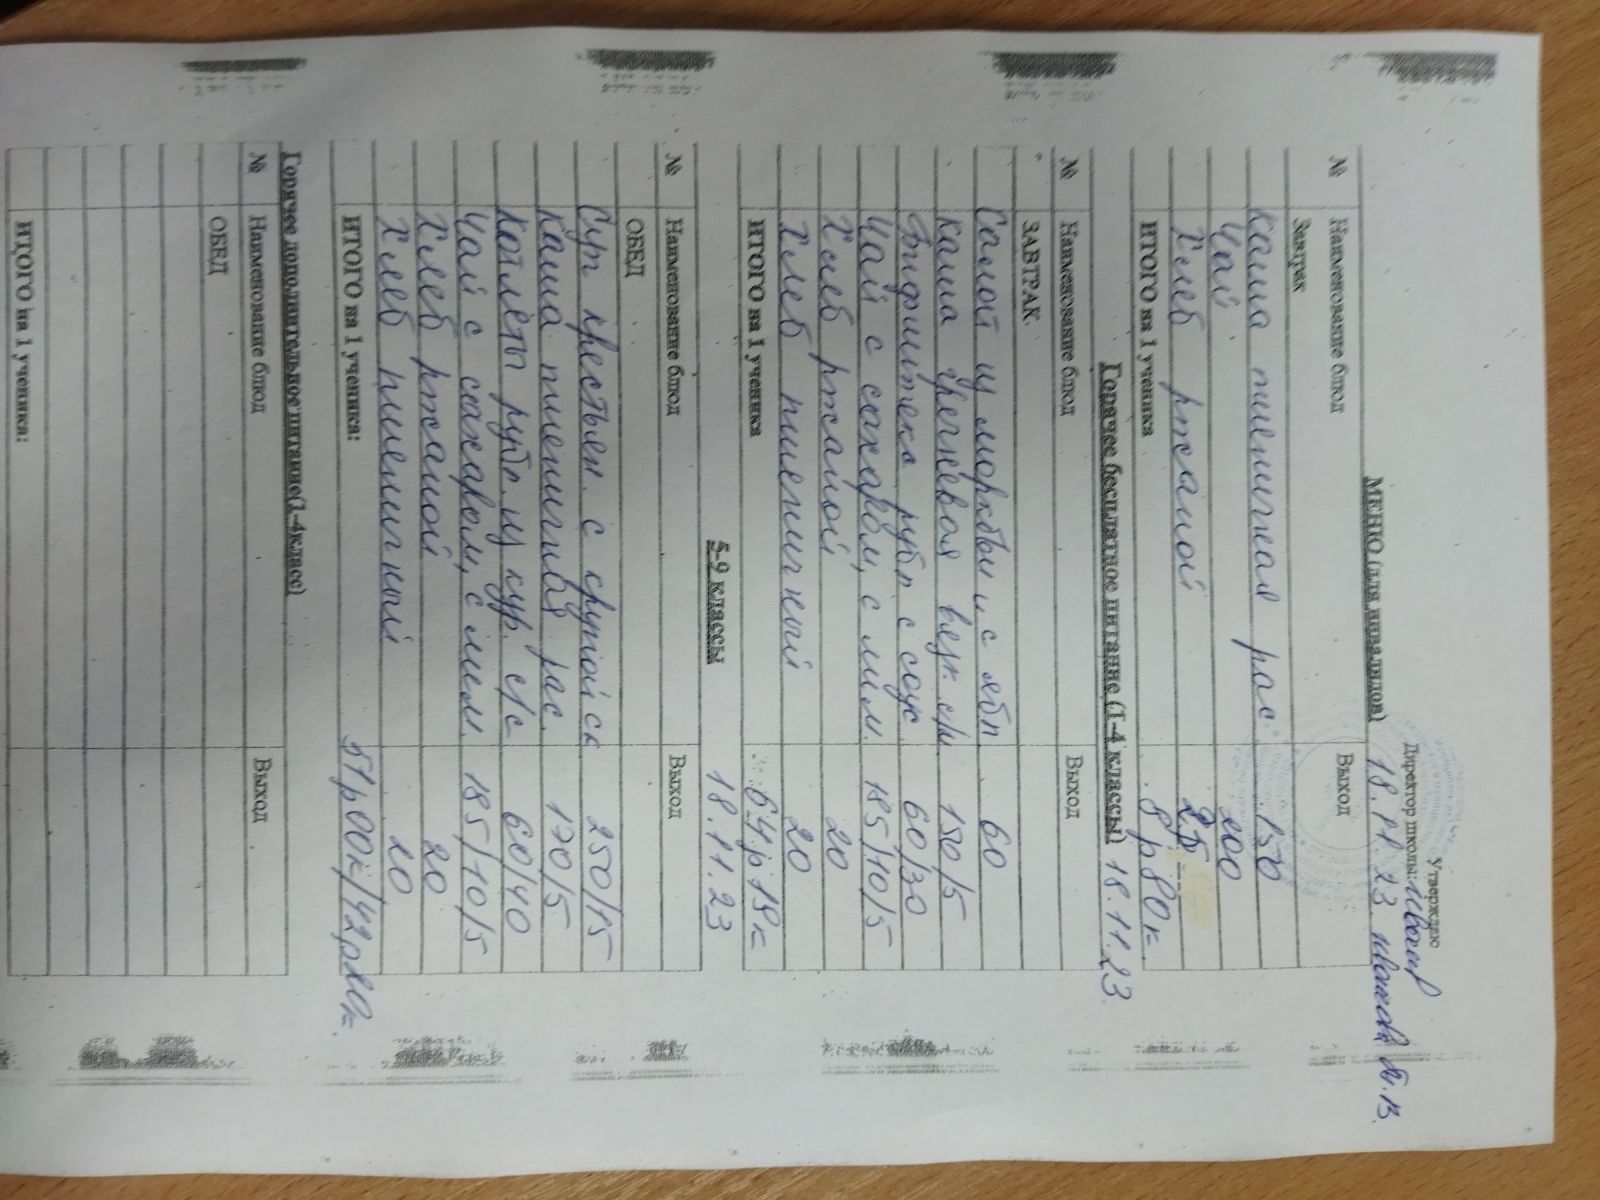 Утверждаю
Директор школы:
МЕНЮ (для инвалидов) 18.11.23
№ Наименование блюд Выход
Завтрак
каша пшеничная рас. 150
Чай 200
Хлеб ржаной 25
ИТОГО на 1 ученика 8р80к
Горячее бесплатное питание (1-4 классы) 18.11.23.
№ Наименование блюд Выход
ЗАВТРАК
Салат из моркови с ябл 60
каша гречневая вязк. с/м 150/5
рыбн с соус. 60/30
Чай с сахаром, с лим. 185/10/5
Хлеб ржаной 20
Хлеб пшеничный 20
ИТОГО на 1 ученика 64р18к
5-9 классы 18.11.23
№ Наименование блюд Выход
ОБЕД
Суп крестьян. с крупой ск 250/15
каша пшеничная рас. 170/5
Котлеты рубл. из кур с/с 60/40
Чай с сахаром, с лим 185/10/5
Хлеб ржаной 20
Хлеб пшеничный 20
ИТОГО на 1 ученика: 51р00к/42р20к.
Горячее дополнительное питание(1-4класс)
№ Наименование блюд Выход
ОБЕД
ИТОГО на 1 ученика: